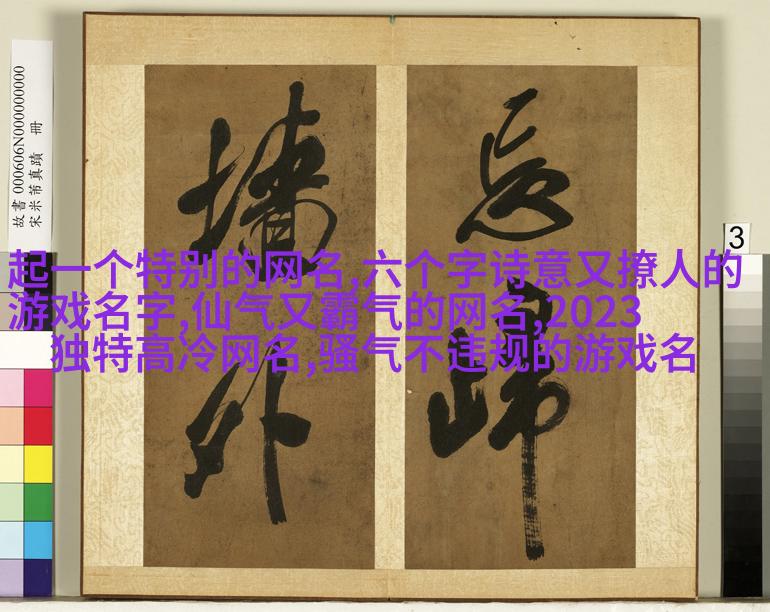 起一个特别的网名,六个字诗意又撩人的
游戏名字,仙气又霸气的网名,2023
独特高冷网名,骚气不违规的游戏名
忘歸
墻外
故書 000606N000000000
宋米芾真蹟 冊
3